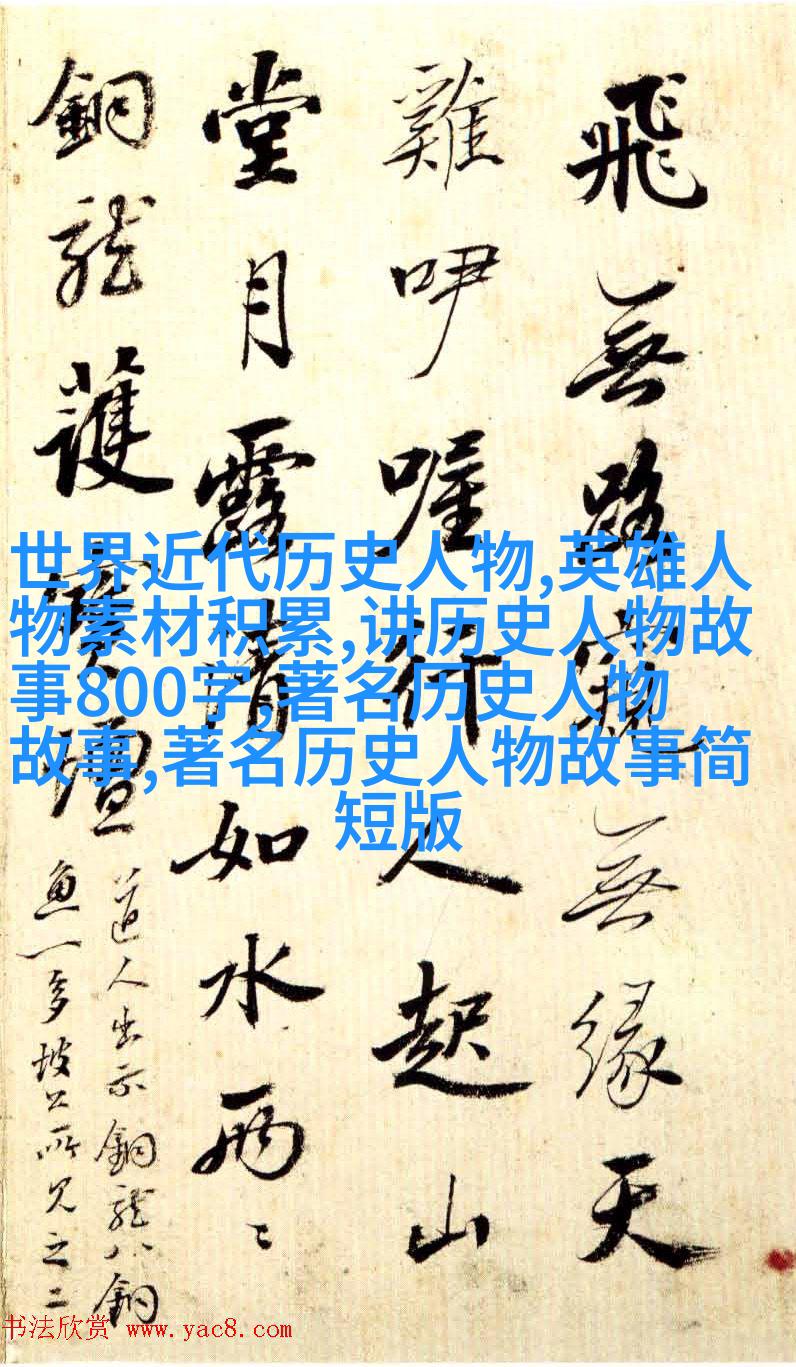 飛無路窺無緣天
雞咿喔行人起山
堂月露清如水兩〻
銅龍護寶壇
道人出示銅龍八銅
魚一多坡公所見之二
世界近代历史人物,英雄人
物素材积累,讲历史人物故
事800字,著名历史人物
故事,著名历史人物故事简
短版
书法欣赏 www.yac8.com